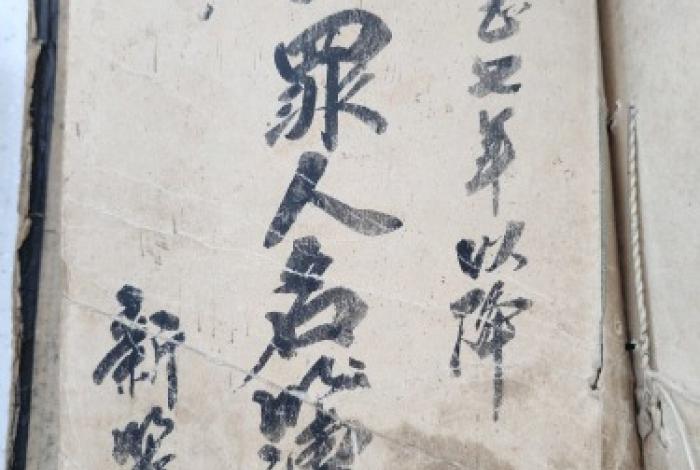 正年以降
罪人名簿
新